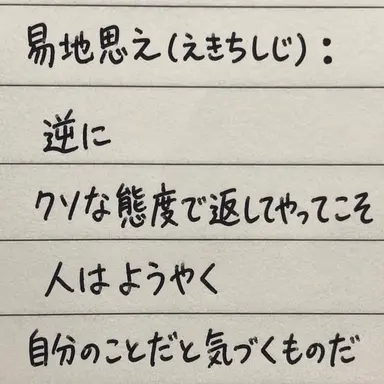 易地思え(えきちしじ):
逆に
クソな態度で返してやってこそ
人はようやく
自分のことだと気づくものだ